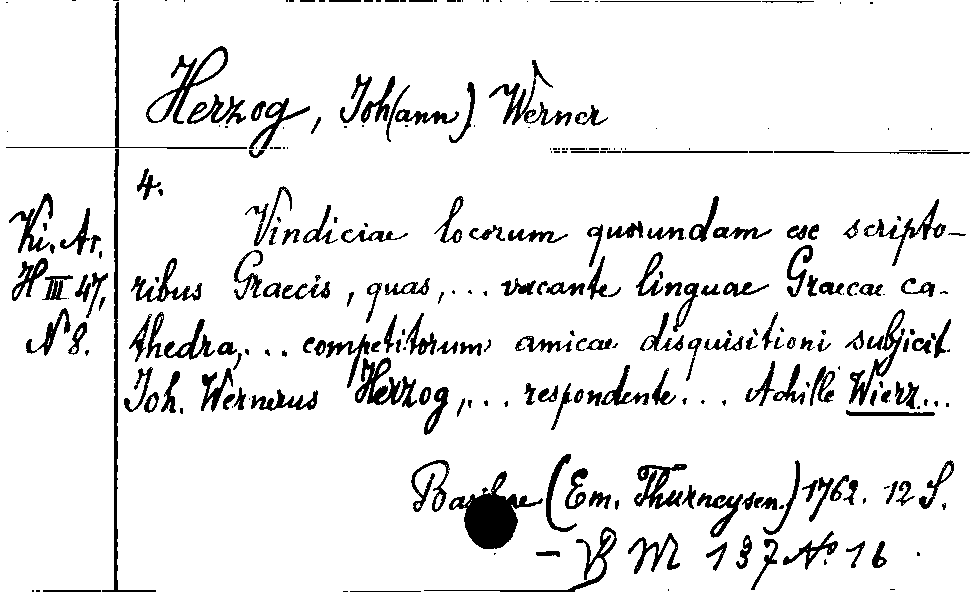 Herzog, Joh(ann) Werner
4.
Ki. Ar.
H III 47,
N 8.
Vindiciae locorum quorundam ex scripto-
ribus Graecis, quas, ... vacante linguae Graecae ca-
thedra, ... competitorum amicae disquisitioni subjicit
Joh. Wernerus Herzog, ... respondente ... Achille Wierz...
Basileae (Em. Thurneysen.) 1762. 12 S.
- B M 137 No 16